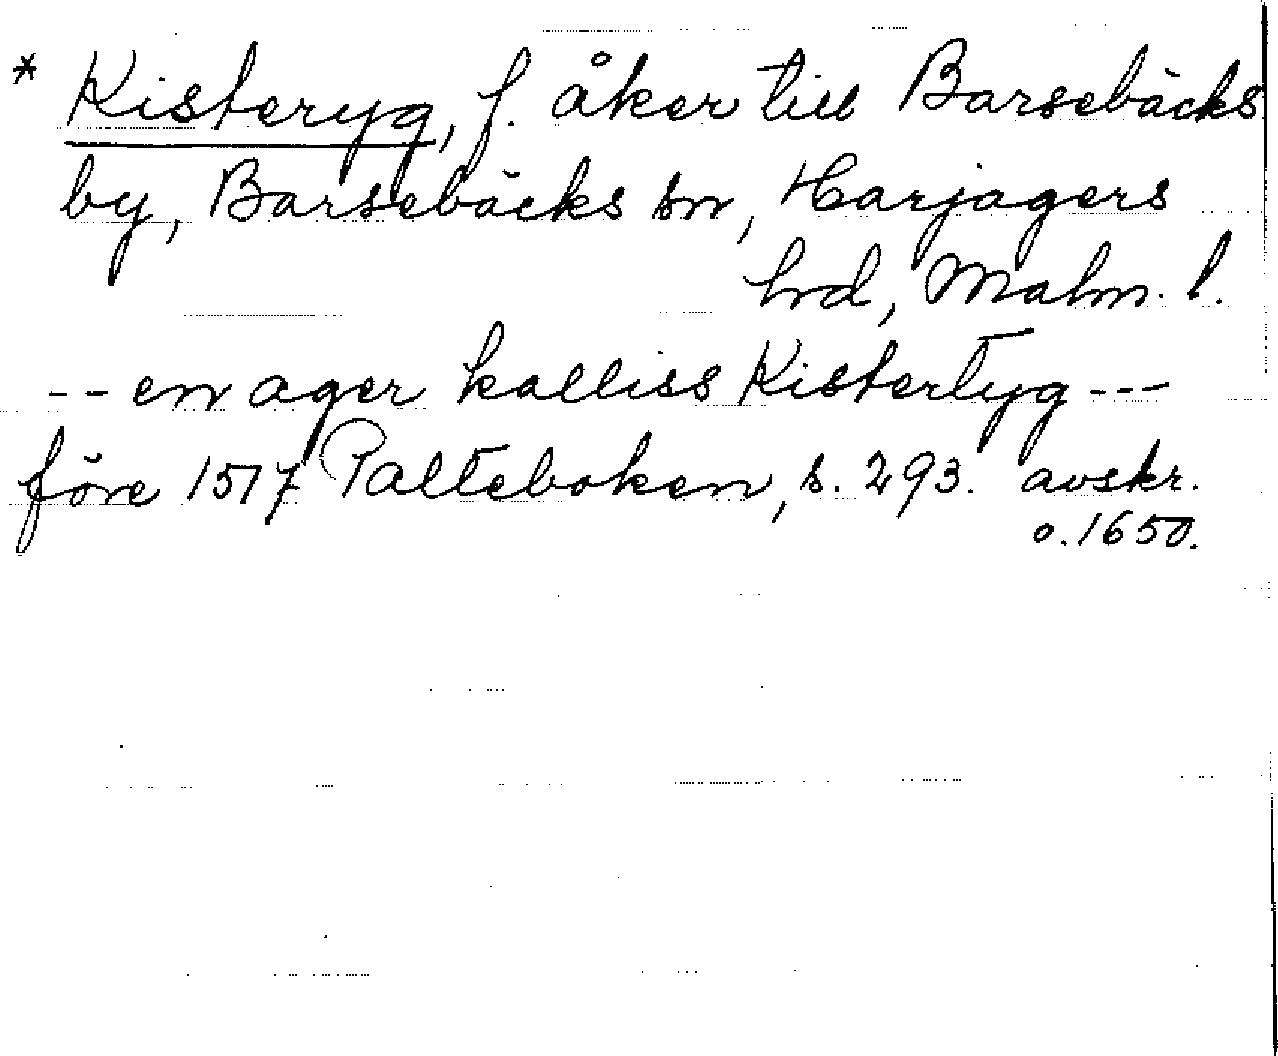 * Kisteryg, f. åker till Barsebäcks
by, Barsebäcks sn, Harjagers
hrd, Malm. l.
-- en ager kalliss Kistertyg ---
före 1517 Palteboken, s. 293. avskr.
o. 1650.